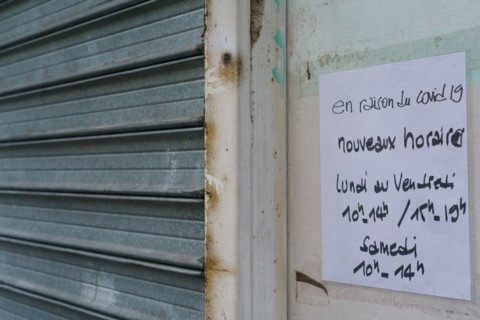 en raison du covid 19
nouveaux horaire
Lundi au Vendredi
10h-14h / 15h-19h
Samedi
10h-14h